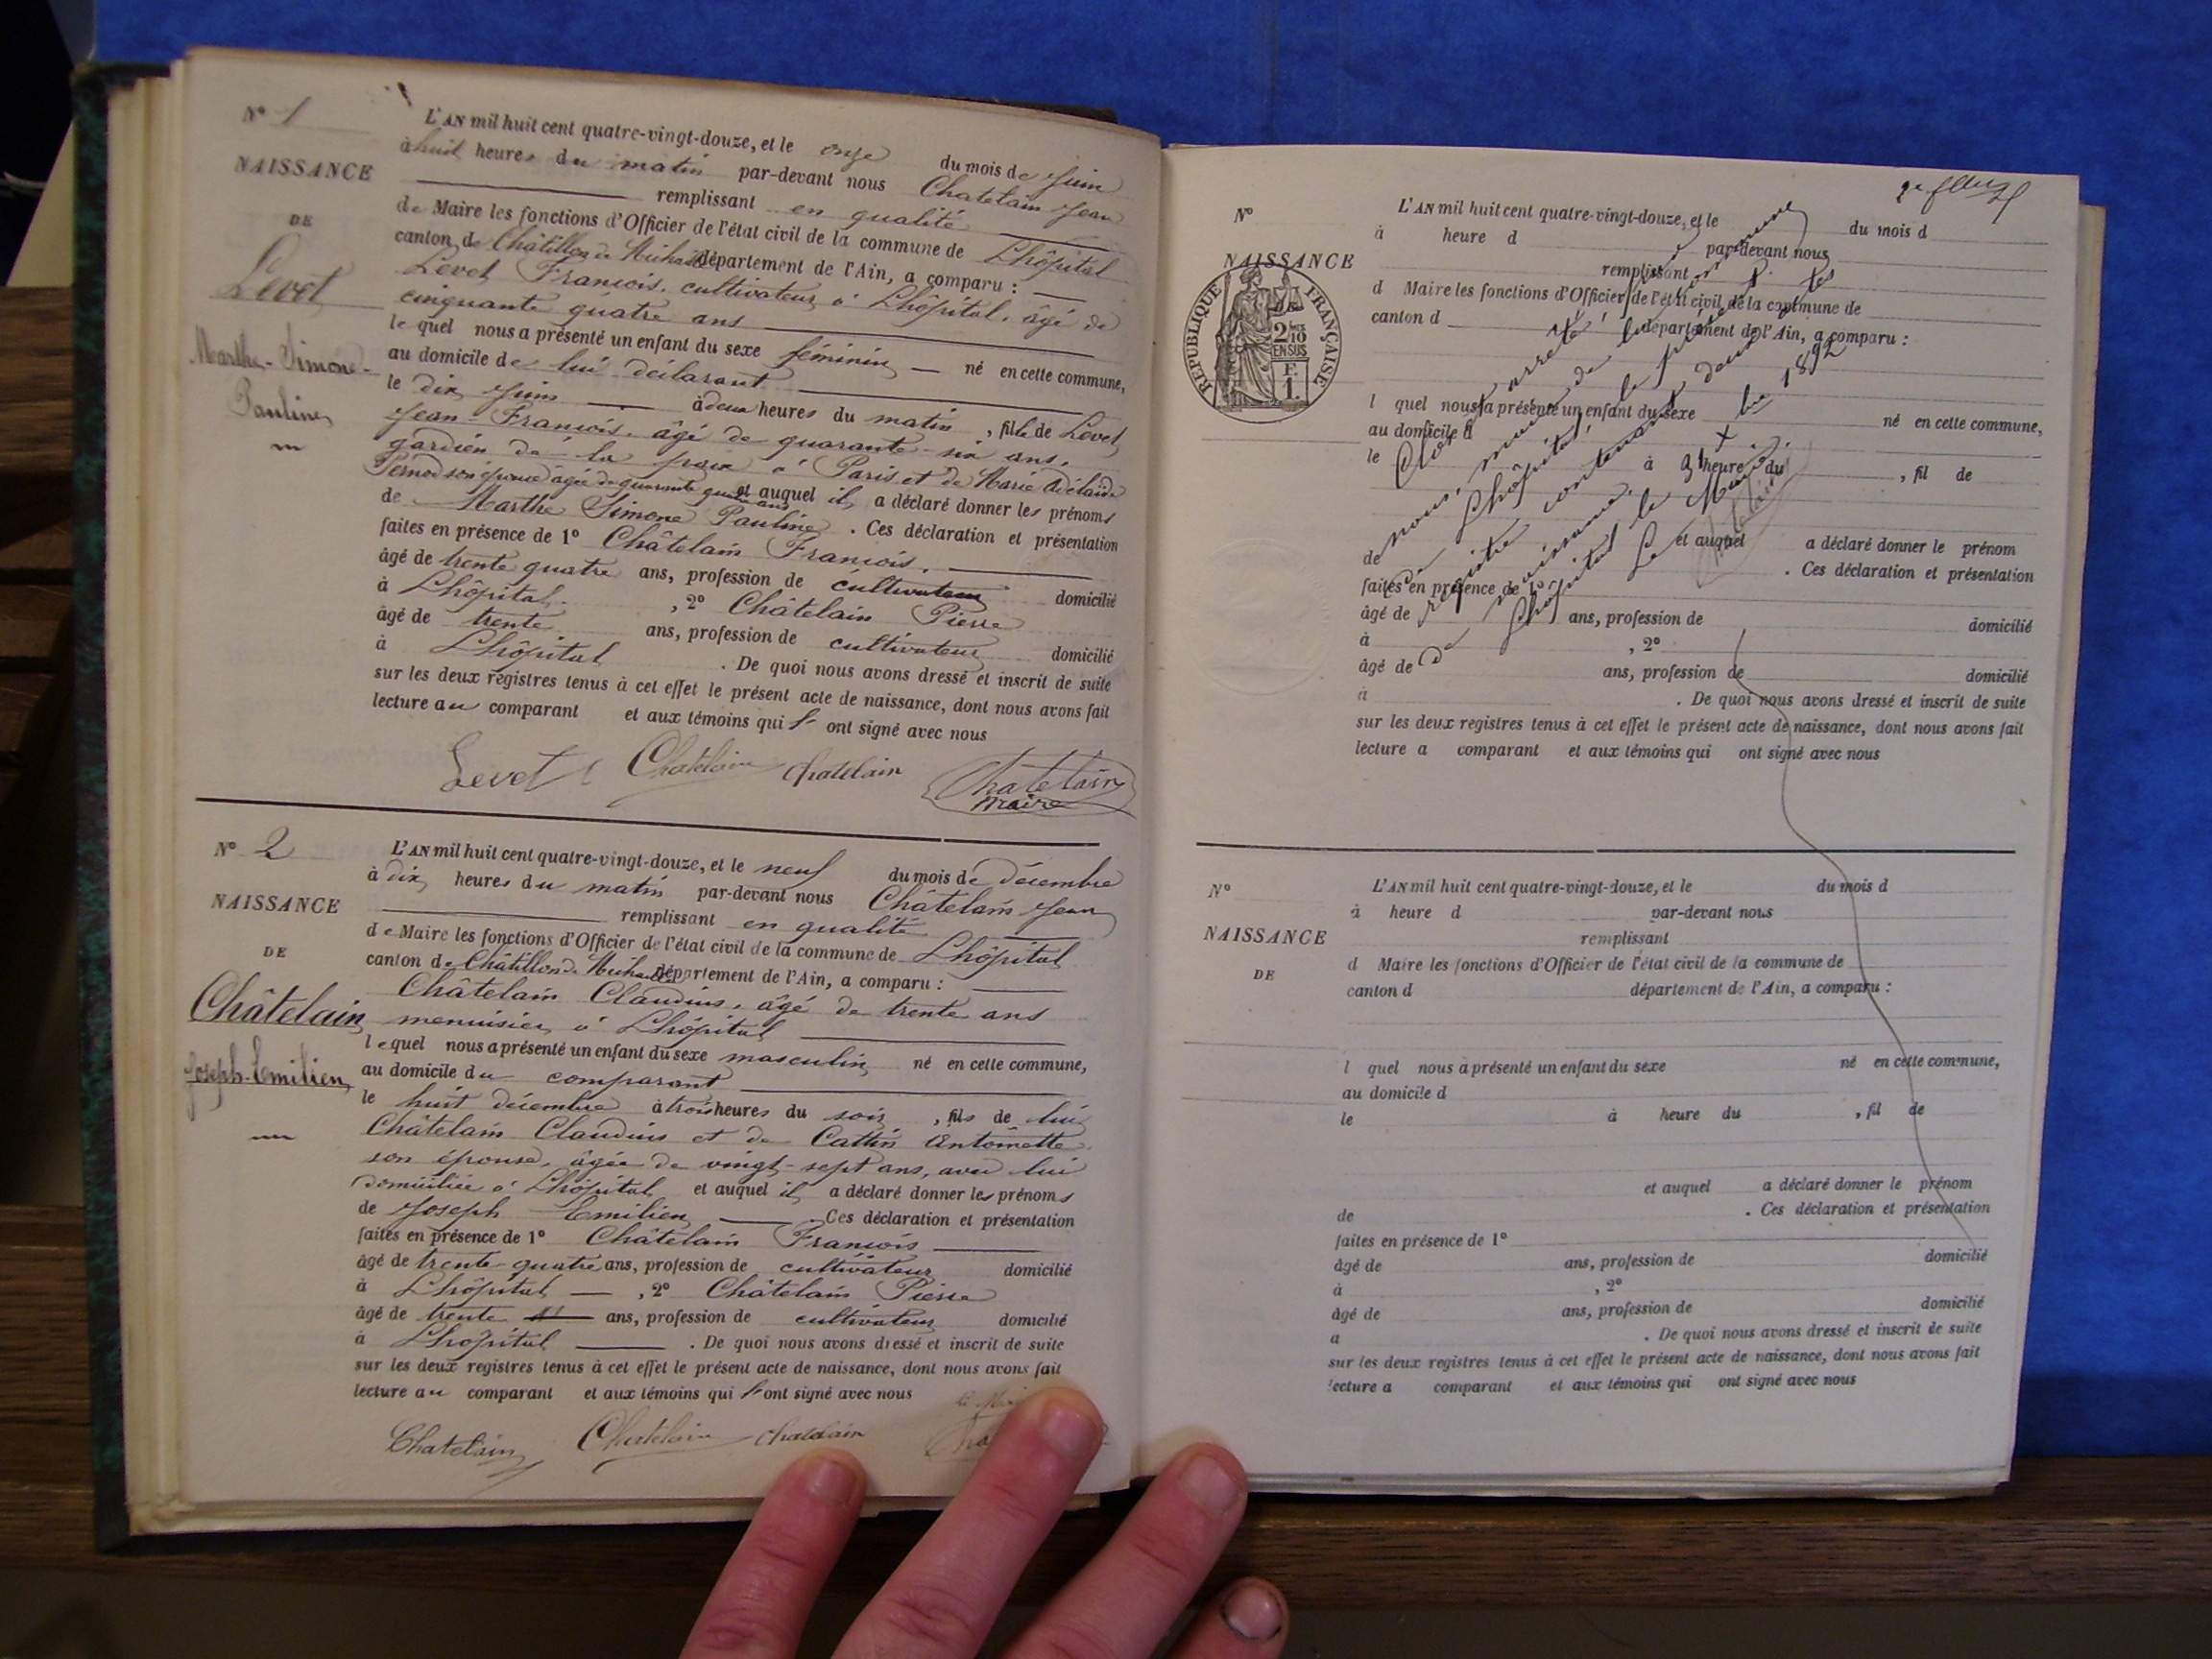 N° 1
NAISSANCE
DE
Levet
Marthe-Simone-
Pauline
L'AN mil huit cent quatre-vingt-douze, et le onze du mois de Juin
à huit heures du matin par-devant nous Chatelain Jean
remplissant en qualité
de Maire les fonctions d'Officier de l'état civil de la commune de Lhôpital
canton de Châtillon de Michaille département de l'Ain, a comparu :
Levet François, cultivateur à Lhôpital, âgé de
cinquante quatre ans
le quel nous a présenté un enfant du sexe féminin né en cette commune,
au domicile de lui déclarant
le dix Juin à deux heures du matin, fille de Levet
Jean-François, âgé de quarante-six ans,
gardien de la paix à Paris et de Marie Adélaïde
Pernod son épouse âgée de quarante quatre ans et auquel il a déclaré donner les prénoms
de Marthe Simone Pauline. Ces déclaration et présentation
faites en présence de 1° Châtelain François,
âgé de trente quatre ans, profession de cultivateur domicilié
à Lhôpital, 2° Châtelain Pierre
âgé de trente ans, profession de cultivateur domicilié
à Lhôpital. De quoi nous avons dressé et inscrit de suite
sur les deux registres tenus à cet effet le présent acte de naissance, dont nous avons fait
lecture au comparant et aux témoins qui ont signé avec nous
Levet Chatelain Chatelain Chatelain
maire
N° 2
NAISSANCE
DE
Châtelain
Joseph-Emilien
L'AN mil huit cent quatre-vingt-douze, et le neuf du mois de décembre
à dix heures du matin par-devant nous Châtelain Jean
remplissant en qualité
de Maire les fonctions d'Officier de l'état civil de la commune de Lhôpital
canton de Châtillon de Michaille département de l'Ain, a comparu :
Châtelain Claudius, âgé de trente ans
menuisier à Lhôpital
lequel nous a présenté un enfant du sexe masculin né en cette commune,
au domicile du comparant
le huit décembre à trois heures du soir, fils de lui
Châtelain Claudius et de Cattin Antoinette
son épouse, âgée de vingt-sept ans, avec lui
domiciliée à Lhôpital et auquel il a déclaré donner les prénoms
de Joseph Emilien. Ces déclaration et présentation
faites en présence de 1° Châtelain François
âgé de trente-quatre ans, profession de cultivateur domicilié
à Lhôpital, 2° Châtelain Pierre
âgé de trente ans, profession de cultivateur domicilié
à Lhôpital. De quoi nous avons dressé et inscrit de suite
sur les deux registres tenus à cet effet le présent acte de naissance, dont nous avons fait
lecture au comparant et aux témoins qui l'ont signé avec nous
Chatelain Chatelain chatelain
N°
NAISSANCE
RÉPUBLIQUE FRANÇAISE
2/10
EN SUS
F.
1.
L'AN mil huit cent quatre-vingt-douze, et le du mois d
à heure d par-devant nous
remplissant
d Maire les fonctions d'Officier de l'état civil de la commune de
canton d département de l'Ain, a comparu :
l quel nous a présenté un enfant du sexe né en cette commune,
au domicile d
le à heure du , fil de
et auquel a déclaré donner le prénom
de . Ces déclaration et présentation
faites en présence de 1°
âgé de ans, profession de domicilié
à , 2°
âgé de ans, profession de domicilié
à . De quoi nous avons dressé et inscrit de suite
sur les deux registres tenus à cet effet le présent acte de naissance, dont nous avons fait
lecture a comparant et aux témoins qui ont signé avec nous
Clos et arreté par
nous, maire de la commune
de Lhôpital, le présent
registre contenant deux actes
de naissance.
Lhôpital le 31 Xbre 1892
Le Maire.
Chatelain
N°
NAISSANCE
DE
L'AN mil huit cent quatre-vingt-douze, et le du mois d
à heure d par-devant nous
remplissant
d Maire les fonctions d'Officier de l'état civil de la commune de
canton d département de l'Ain, a comparu :
l quel nous a présenté un enfant du sexe né en cette commune,
au domicile d
le à heure du , fil de
et auquel a déclaré donner le prénom
de . Ces déclaration et présentation
faites en présence de 1°
âgé de ans, profession de domicilié
à , 2°
âgé de ans, profession de domicilié
a . De quoi nous avons dressé et inscrit de suite
sur les deux registres tenus à cet effet le présent acte de naissance, dont nous avons fait
lecture a comparant et aux témoins qui ont signé avec nous